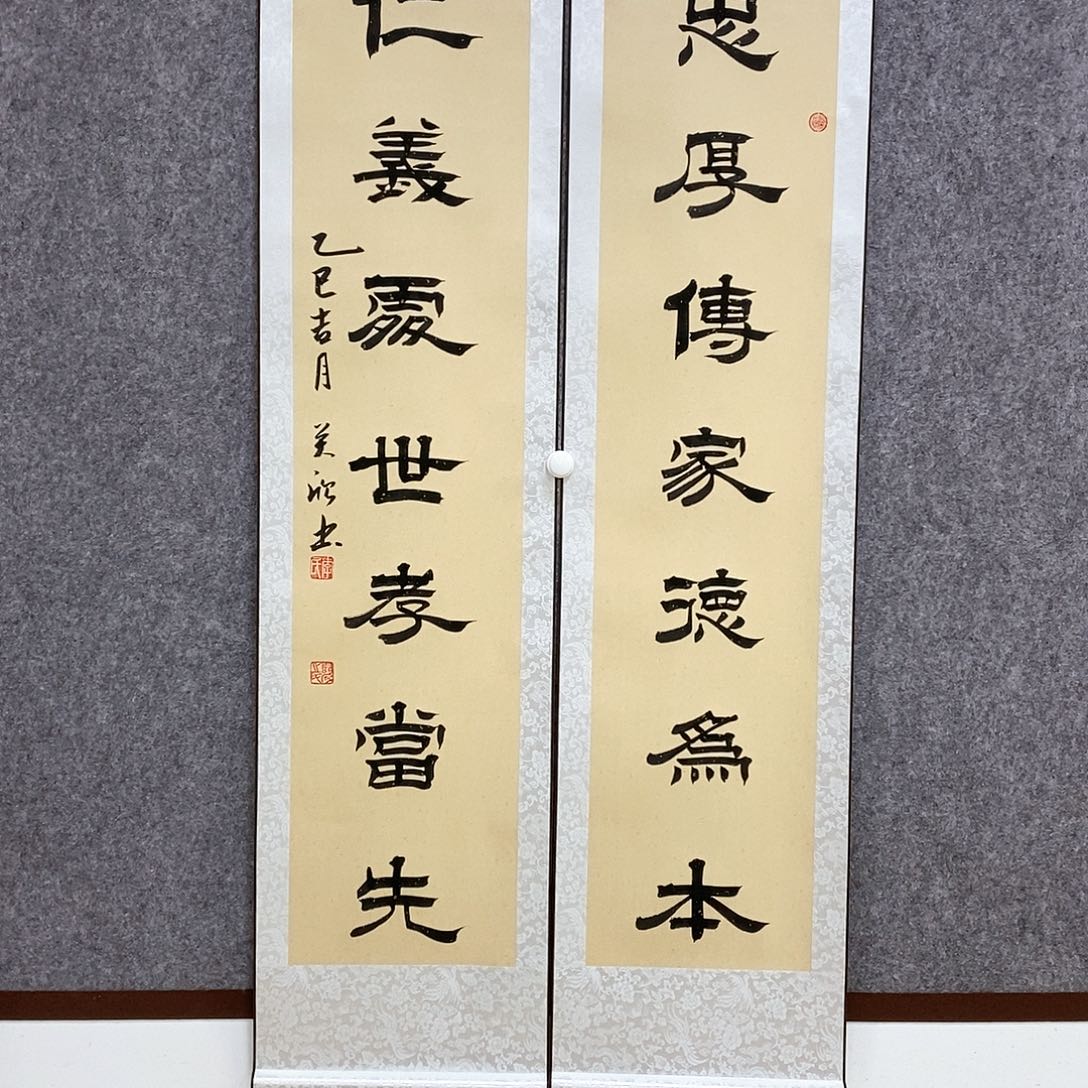 忠厚傳家德為本
仁義處世孝當先
乙巳吉月 吴欣书